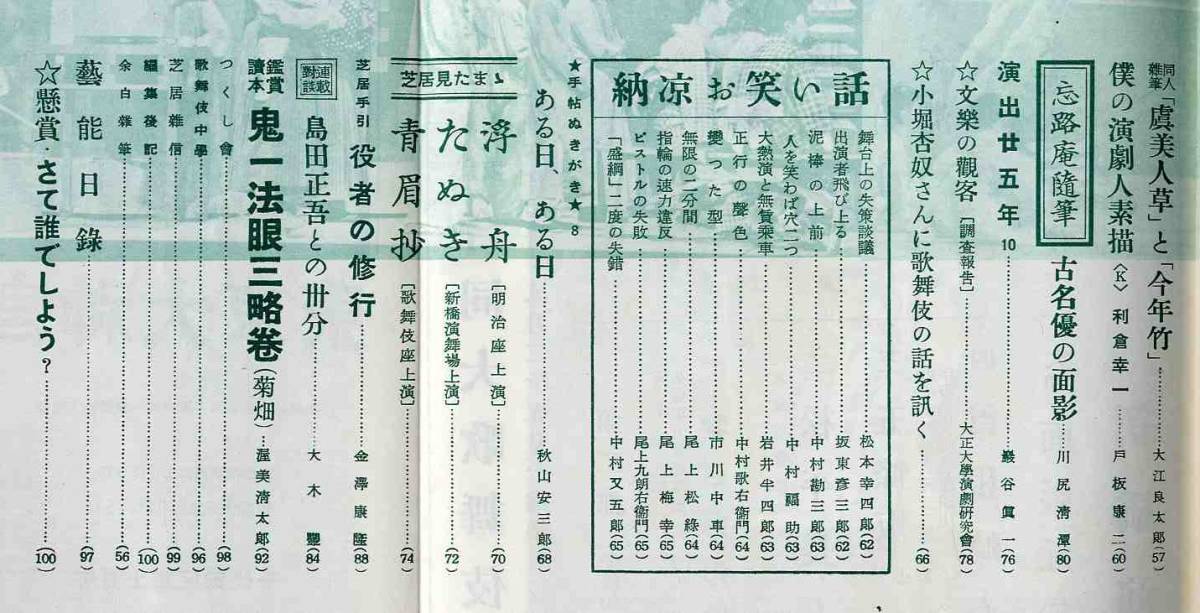 同人雜筆 「虞美人草」と「今年竹」 大江良太郎(57)
僕の演劇人素描〈K〉 利倉幸一 戸板康二(60)
忘路庵隨筆 古名優の面影 川尻清潭(80)
演出廿五年 10 巖谷眞一(76)
☆文樂の觀客[調査報告] 大正大學演劇研究會(78)
☆小堀杏奴さんに歌舞伎の話を訊く (66)
納凉お笑い話
舞台上の失策談議 松本幸四郎(62)
出演者飛び上る 坂東彦三郎(62)
泥棒の上前 中村勘三郎(63)
人を笑わば穴二つ 中村福助(63)
大熱演と無賃乘車 岩井半四郎(63)
正行の聲色 中村歌右衞門(64)
變つた型 市川中車(64)
無限の二分間 尾上松綠(64)
指輪の速力違反 尾上梅幸(65)
ピストルの失敗 尾上九朗右衞門(65)
「盛綱」二度の失錯 中村又五郎(65)
★手帖ぬきがき★8
ある日、ある日 秋山安三郎(68)
芝居見たまゝ
浮舟[明治座上演] (70)
たぬき[新橋演舞場上演] (72)
青眉抄[歌舞伎座上演] (74)
芝居手引 役者の修行 金澤康隆(88)
連載對談 島田正吾との卅分 大木豊(84)
鑑賞讀本 鬼一法眼三略卷(菊畑) 渥美清太郎(92)
つくし會 (98)
歌舞伎中學 (96)
芝居雜信 (99)
編集後記 (100)
余白雜筆 (56)
藝能日錄 (97)
☆懸賞・さて誰でしよう？ (100)